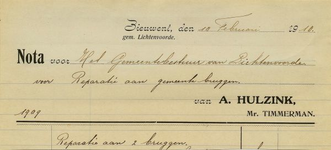 Zieuwent, den 10 Februari 1910.
gem. Lichtenvoorde.
Nota voor Het Gemeentebestuur van Lichtenvoorde
voor Reparatie aan gemeente bruggen.
van A. HULZINK,
Mr. TIMMERMAN.
1909
Reparatie aan 2 bruggen.